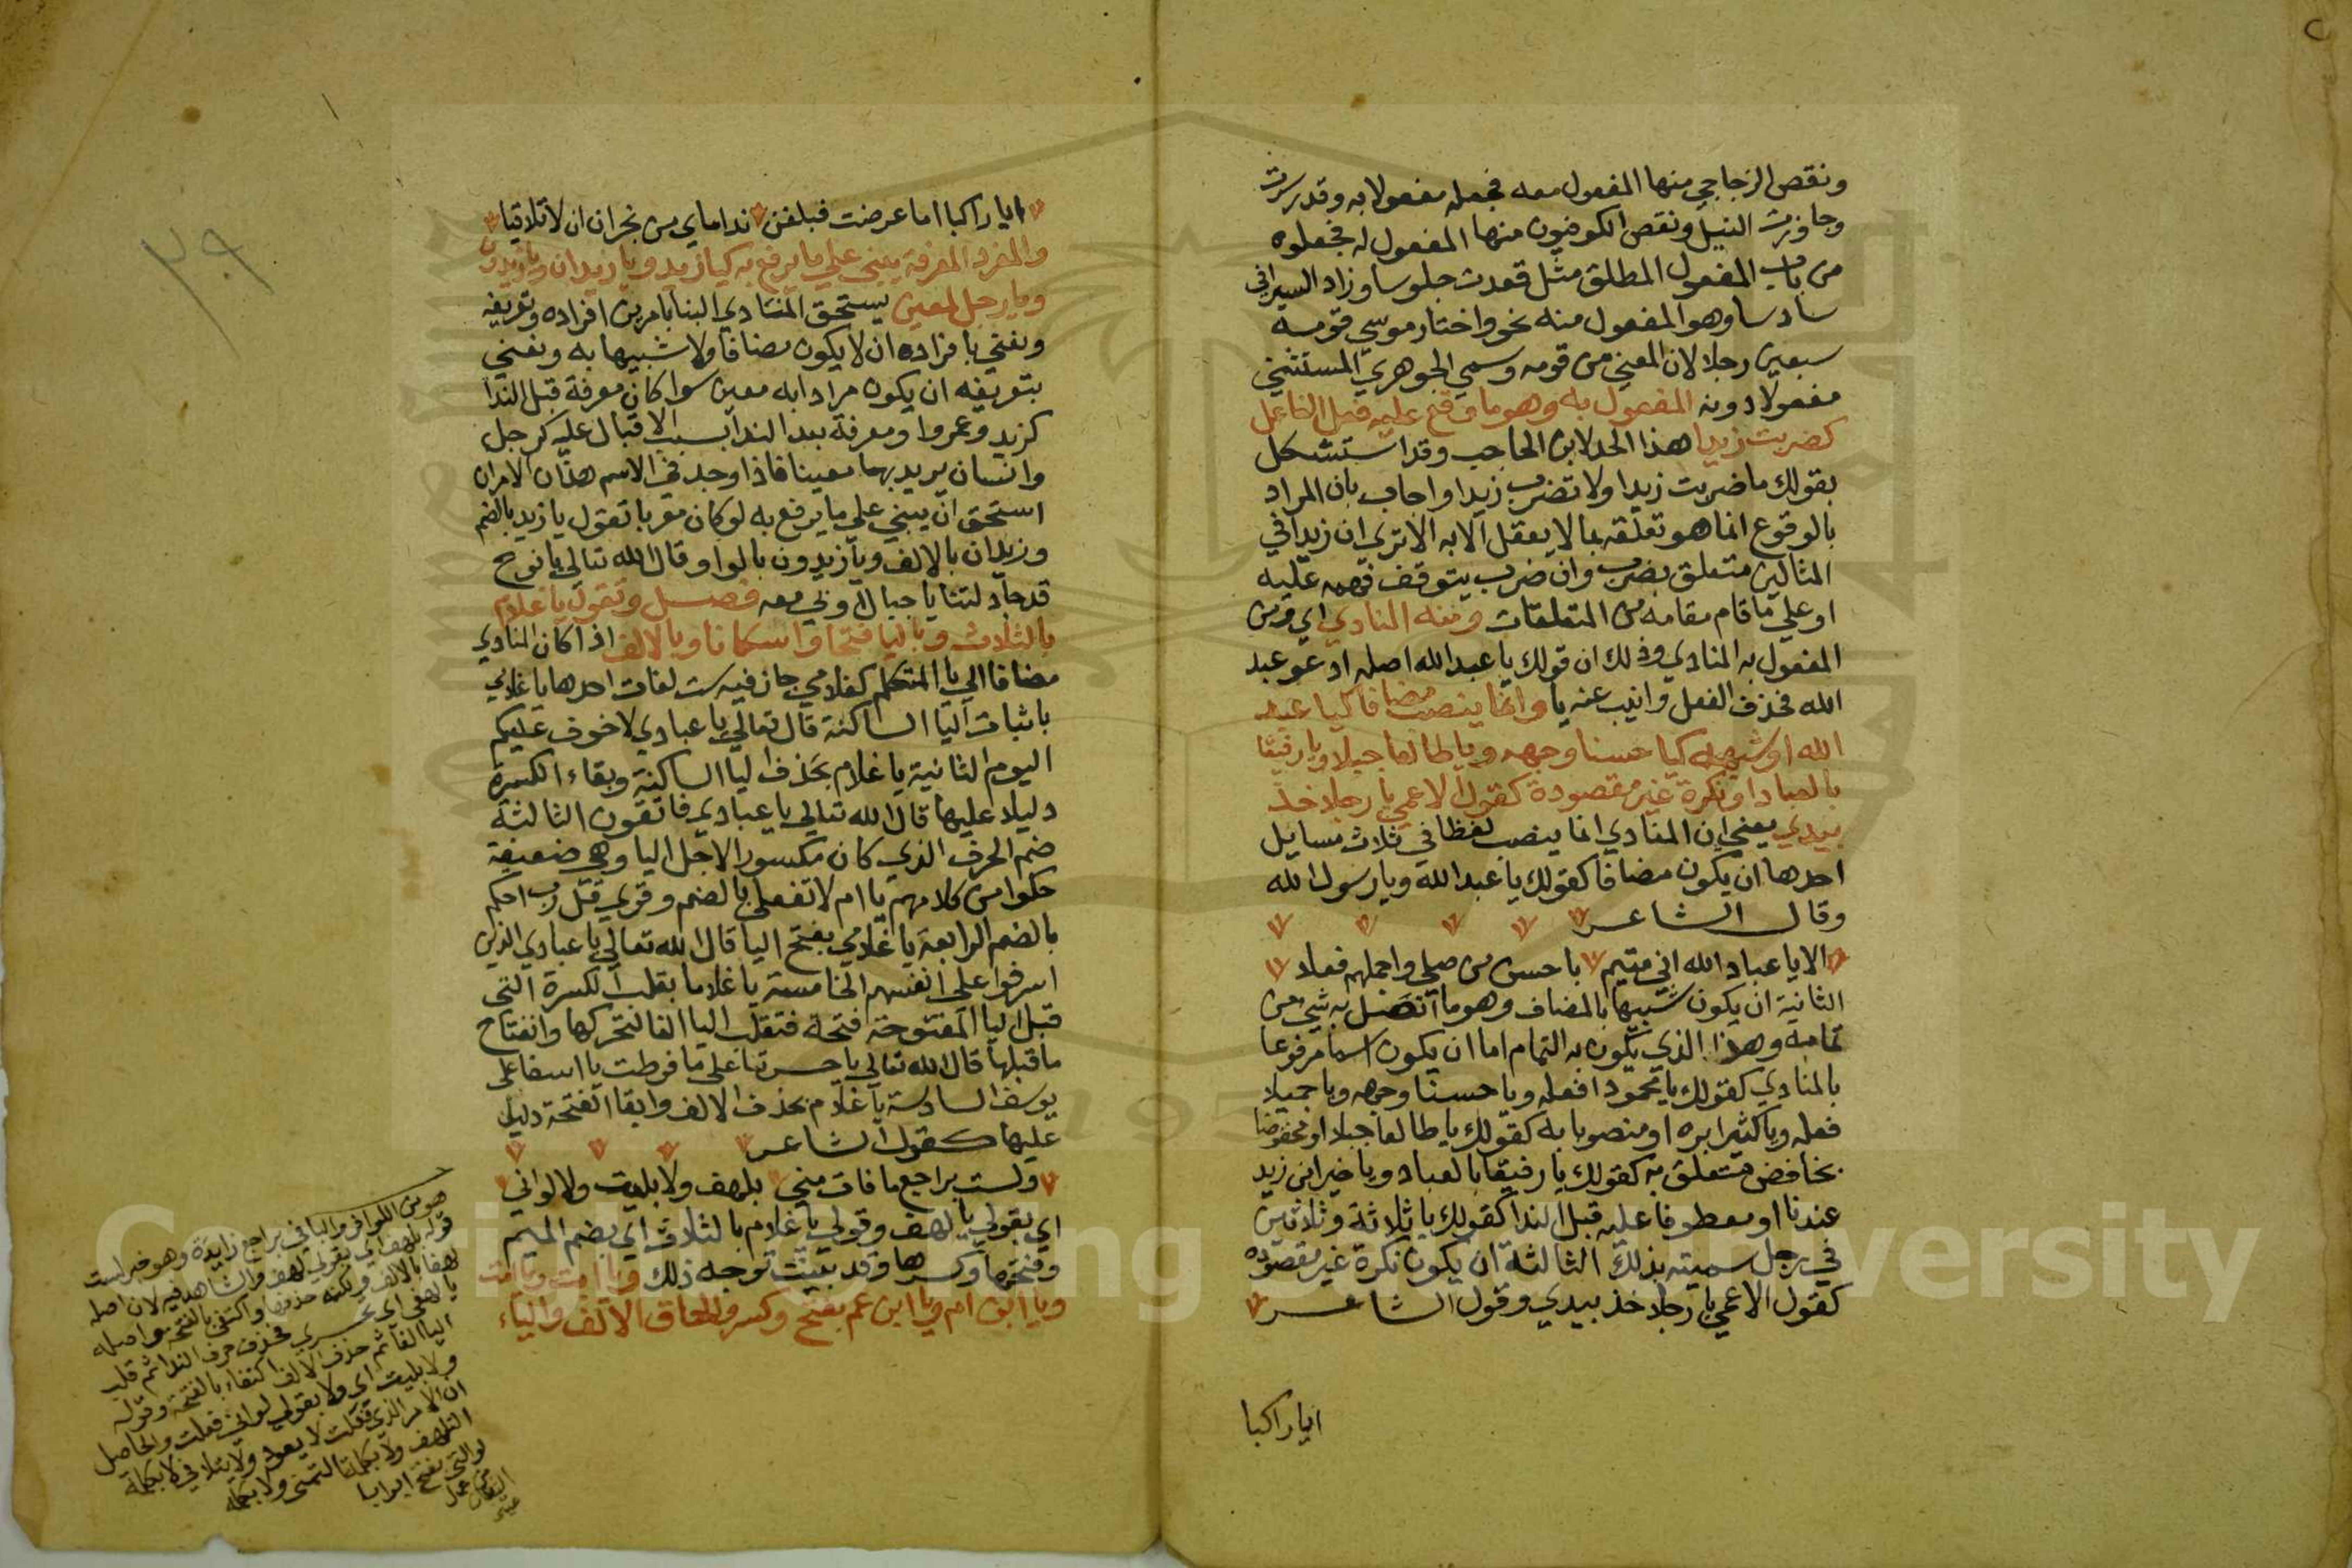 ونقص الزجاجي منها المفعول معه فجعله مفعولا به وقدر سرت
وجاوزت النيل ونقص الكوفيون منها المفعول له فجعلوه
من باب المفعول المطلق مثل قعدت جلوسا وزاد السيرافي
سادسا وهو المفعول منه نحو واختار موسي قومه
سبعين رجلا لان المعني من قومه وسمي الجوهري المستثني
مفعولا دونه المفعول به وهو ما وقع عليه فعل الفاعل
كضربت زيدا هذا الحد لابن الحاجب وقد استشكل
بقولك ما ضربت زيدا ولا تضرب زيدا واجاب بان المراد
بالوقوع انما هو تعلقه بما لا يعقل الا به الا تري ان زيدا في
المثالين متعلق بضرب وان ضرب يتوقف فهمه عليه
او علي ما قام مقامه من المتعلقات ومنه المنادي اي ومن
المفعول به المنادي وذلك ان قولك يا عبد الله اصله ادعو عبد
الله فحذف الفعل وانيب عنه يا وانما ينصب مضافا كيا عبد
الله او شبهه كيا حسنا وجهه ويا طالعا جبلا ويا رفيقا
بالعباد او نكرة غير مقصودة كقول الاعمي يا رجلا خذ
بيدي يعني ان المنادي انما ينصب لفظا في ثلاث مسايل
احدها ان يكون مضافا كقولك يا عبد الله ويا رسول الله
وقال الشاعر
الا يا عباد الله اني متيم باحسن من صلي واجملهم فعلا
الثانية ان يكون شبيها بالمضاف وهو ما اتصل به شيء من
تمامه وهذا الذي يكون به التمام اما ان يكون اسما مرفوعا
بالمنادي كقولك يا محمودا فعله ويا حسنا وجهه ويا جميلا
فعله ويا كثيرا بره او منصوبا به كقولك يا طالعا جبلا او مخفوضا
بخافض متعلق به كقولك يا رفيقا بالعباد ويا خيرا من زيد
عندنا او معطوفا عليه قبل الندا كقولك يا ثلاثة وثلاثين
في رجل سميته بذلك الثالثة ان يكون نكرة غير مقصوده
كقول الاعمي يا رجلا خذ بيدي وقول الشاعر
ايا راكبا
٢٩
ايا راكبا اما عرضت فبلغن نداماي من نجران ان لا تلاقيا
والمفرد المعرفة يبني علي ما يرفع به كيا زيد ويا زيدان ويا زيدون
ويا رجل لمعين يستحق المنادي البنا بامرين افراده وتعريفه
ونعني بافراده ان لا يكون مضافا ولا شبيها به ونعني
بتعريفه ان يكون مرادا به معين سوا كان معرفة قبل الندا
كزيد وعمروا ومعرفة بعد الندا بسبب الاقبال عليه كرجل
وانسان يريد بهما معينا فاذا وجد في الاسم هذان الامران
استحق ان يبني علي ما يرفع به لو كان معربا تقول يا زيد بالضم
وزيدان بالالف ويا زيدون بالواو قال الله تعالي يا نوح
قد جادلتنا يا جبال اوبي معه فصل وتقول يا غلام
بالثلاث وباليا فتحا واسكانا وبالالف اذا كان المنادي
مضافا الي يا المتكلم كغلامي جاز فيه ست لغات احدها يا غلامي
باثبات اليا الساكنة قال تعالي يا عبادي لا خوف عليكم
اليوم الثانية يا غلام بحذف اليا الساكنة وبقاء الكسرة
دليلا عليها قال الله تعالي يا عبادي فاتقون الثالثة
ضم الحرف الذي كان مكسورا لاجل اليا وهي ضعيفة
حكوا من كلامهم يا ام لا تفعلي بالضم وقري قل رب احكم
بالضم الرابعة يا غلامي بفتح اليا قال الله تعالي يا عبادي الذين
اسرفوا علي انفسهم الخامسة يا غلاما بقلب الكسرة التي
قبل اليا المفتوحة فتحة فتقلب اليا الفا لتحركها وانفتاح
ما قبلها قال الله تعالي يا حسرتا علي ما فرطت يا اسفا علي
يوسف السادسة يا غلام بحذف الالف وابقا الفتحة دليل
عليها كقول الشاعر
ولست براجع ما فات مني بلهف ولا بليت ولا لواني
اي بقولي يا لهف وقولي يا غلام بالثلاث اي بضم الميم
وفتحها وكسرها وقد بينت توجيه ذلك ويا ابت ويا امت
ويا ابن ام ويا ابن عم بفتح وكسر والحاق الالف والياء
هو من الوافر والبا في براجع زايدة وهو خبر لست
قوله بلهف اي بقولي لهف والشاهد فيه لان اصله
لهفا بالالف ولكنه حذفها واكتفي بالفتحة واصله
يا لهفي اي يا حسرتي فحذف حرف الندا ثم قلب
اليا الفا ثم حذف الالف اكتفاء بالفتحة وقوله
ولا بليت اي ولا بقولي لواني فعلت والحاصل
ان الامر الذي فعلت لا يعود ولا يتلافي لا بكلمة
التلهف ولا بكلمة التمني ولا بكلمة
لو التي تفتح ابوابا
من عمل